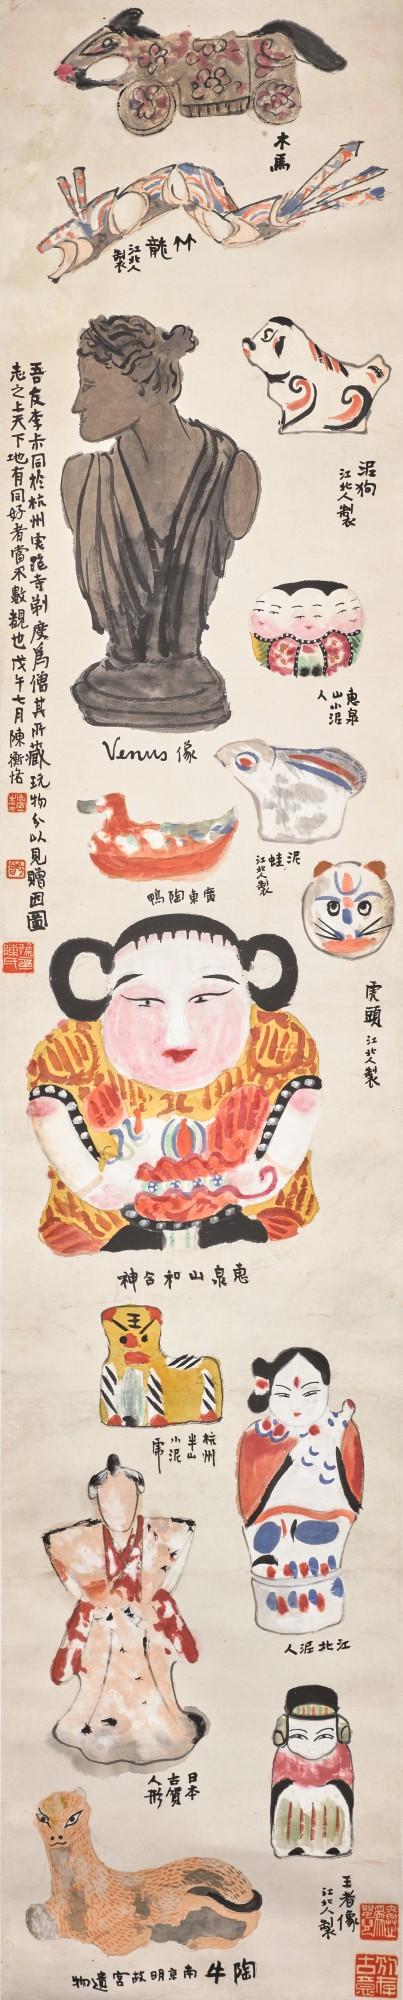 木馬
竹龍
江北人
製
吾友李未同於杭州定慧寺剃度爲僧其所藏玩物分以見贈因圖
志之上天下地有同好者當不數覯也戊午七月陳衡恪
泥狗
江北人製
惠泉
山小泥
人
Venus 像
廣東陶鴨
泥蛙
江北人製
虎頭 江北人製
惠泉山和合神
杭州
半山
小泥
虎
江北泥人
日本
古賀
人形
王者像
江北人製
陶牛 南京明故宮遺物